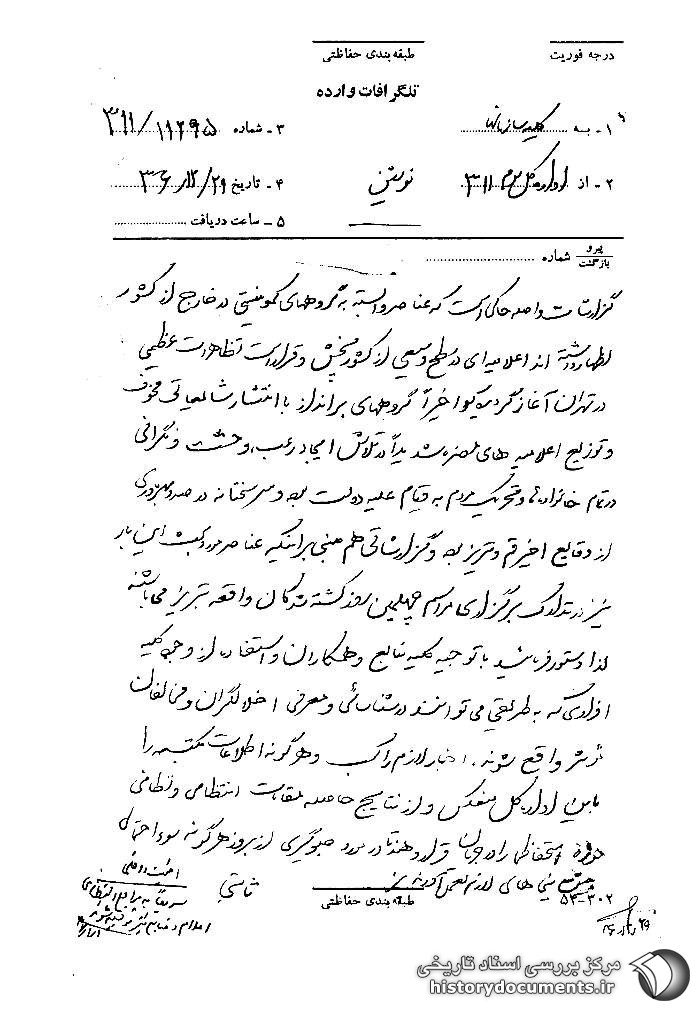 درجه فوریت
طبقه بندی حفاظتی
تلگرافات وارده
۱- به کلیه سازمانها
۳- شماره ۳۱۱/۱۱۲۹۵
۲- از اداره کل سوم ۳۱۱
۴- تاریخ ۳۶/۱۲/۲۹
۵- ساعت دریافت
پیرو
بازگشت
شماره
گزارشات واصله حاکی است که عناصر وابسته به گروههای کمونیستی در خارج از کشور
اظهار داشته اند اعلامیه ای در سطح وسیعی از کشور پخش و قرار است تظاهرات عظیمی
در تهران آغاز گردد و اخیراً گروههای برانداز با انتشار شایعاتی مخوف
و توزیع اعلامیه های مضره شدیداً در تلاش ایجاد رعب، وحشت و نگرانی
در تمام خانواده ها و تحریک مردم به قیام علیه دولت بوده و سرسختانه در صدد بهره برداری
از وقایع اخیر قم و تبریز بوده و گزارشاتی هم مبنی بر اینکه عناصر مورد بحث این بار
نیز در تدارک برگزاری مراسم چهلمین روز کشته شدگان واقعه تبریز می باشند
لذا دستور فرمائید با توجیه کلیه منابع و همکاران و استفاده از وجود کلیه
افرادی که به طریقی می توانند در شناسائی و معرفی اخلالگران و مخالفان
مؤثر واقع شوند، اخبار لازم را کسب و هرگونه اطلاعات مکتسبه را
باین اداره کل منعکس و از نتایج حاصله مقامات انتظامی و نظامی
حوزه استحفاظی را در جریان قرار دهند تا در مورد جلوگیری از بروز هرگونه سوء احتمالی
پیش بینی های لازم بعمل آورند
ثابتی
طبقه بندی حفاظتی
۵۳-۳۰۲
امنیت داخلی
مرکز بررسی اسناد تاریخی
historydocuments.ir